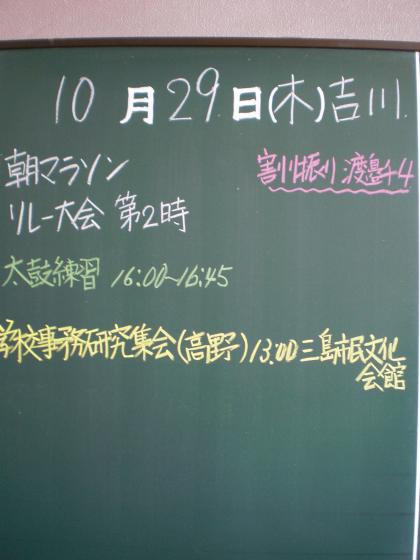 10月29日(木)吉川
朝マラソン
割り振り 渡邉千4
リレー大会 第2時
太鼓練習 16:00~16:45
学校事務研究集会(高野)13:00三島市民文化
会館